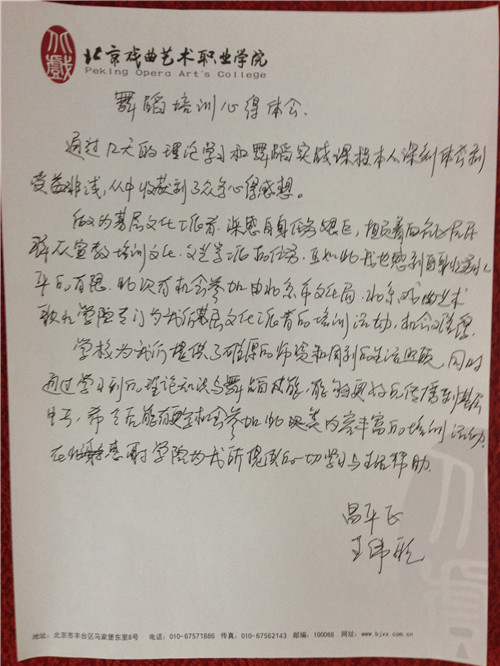 北京戏曲艺术职业学院
Peking Opera Art's College
舞蹈培训心得体会.
通过12天的理论学习和舞蹈实践课程本人深刻体会到
受益非浅,从中收获到了众多心得感想。
做为基层文化工作者,深感自身任务艰巨,担负着向社区居民
群众宣教培训文化、文艺
有限.此次有机会参加由北京市文化局、北京戏曲艺术
职业学院专门为我们基层文化工作者的培训活动,机会
学校为我们提供了雄厚的师资和周到的生活照顾,同时
通过学习到的理论知识与舞蹈技能,能够更好的传播到社会
希今后能有更多机会参加此类内容丰富的培训活动.
在此感谢学院为我们提供的一切学习与生活帮助.
昌平区
王伟
地址:北京市丰台区马家堡东里8号 电话:010-67571886 传真:010-67562143 邮编:100068 网址:www.bjxx.com.cn